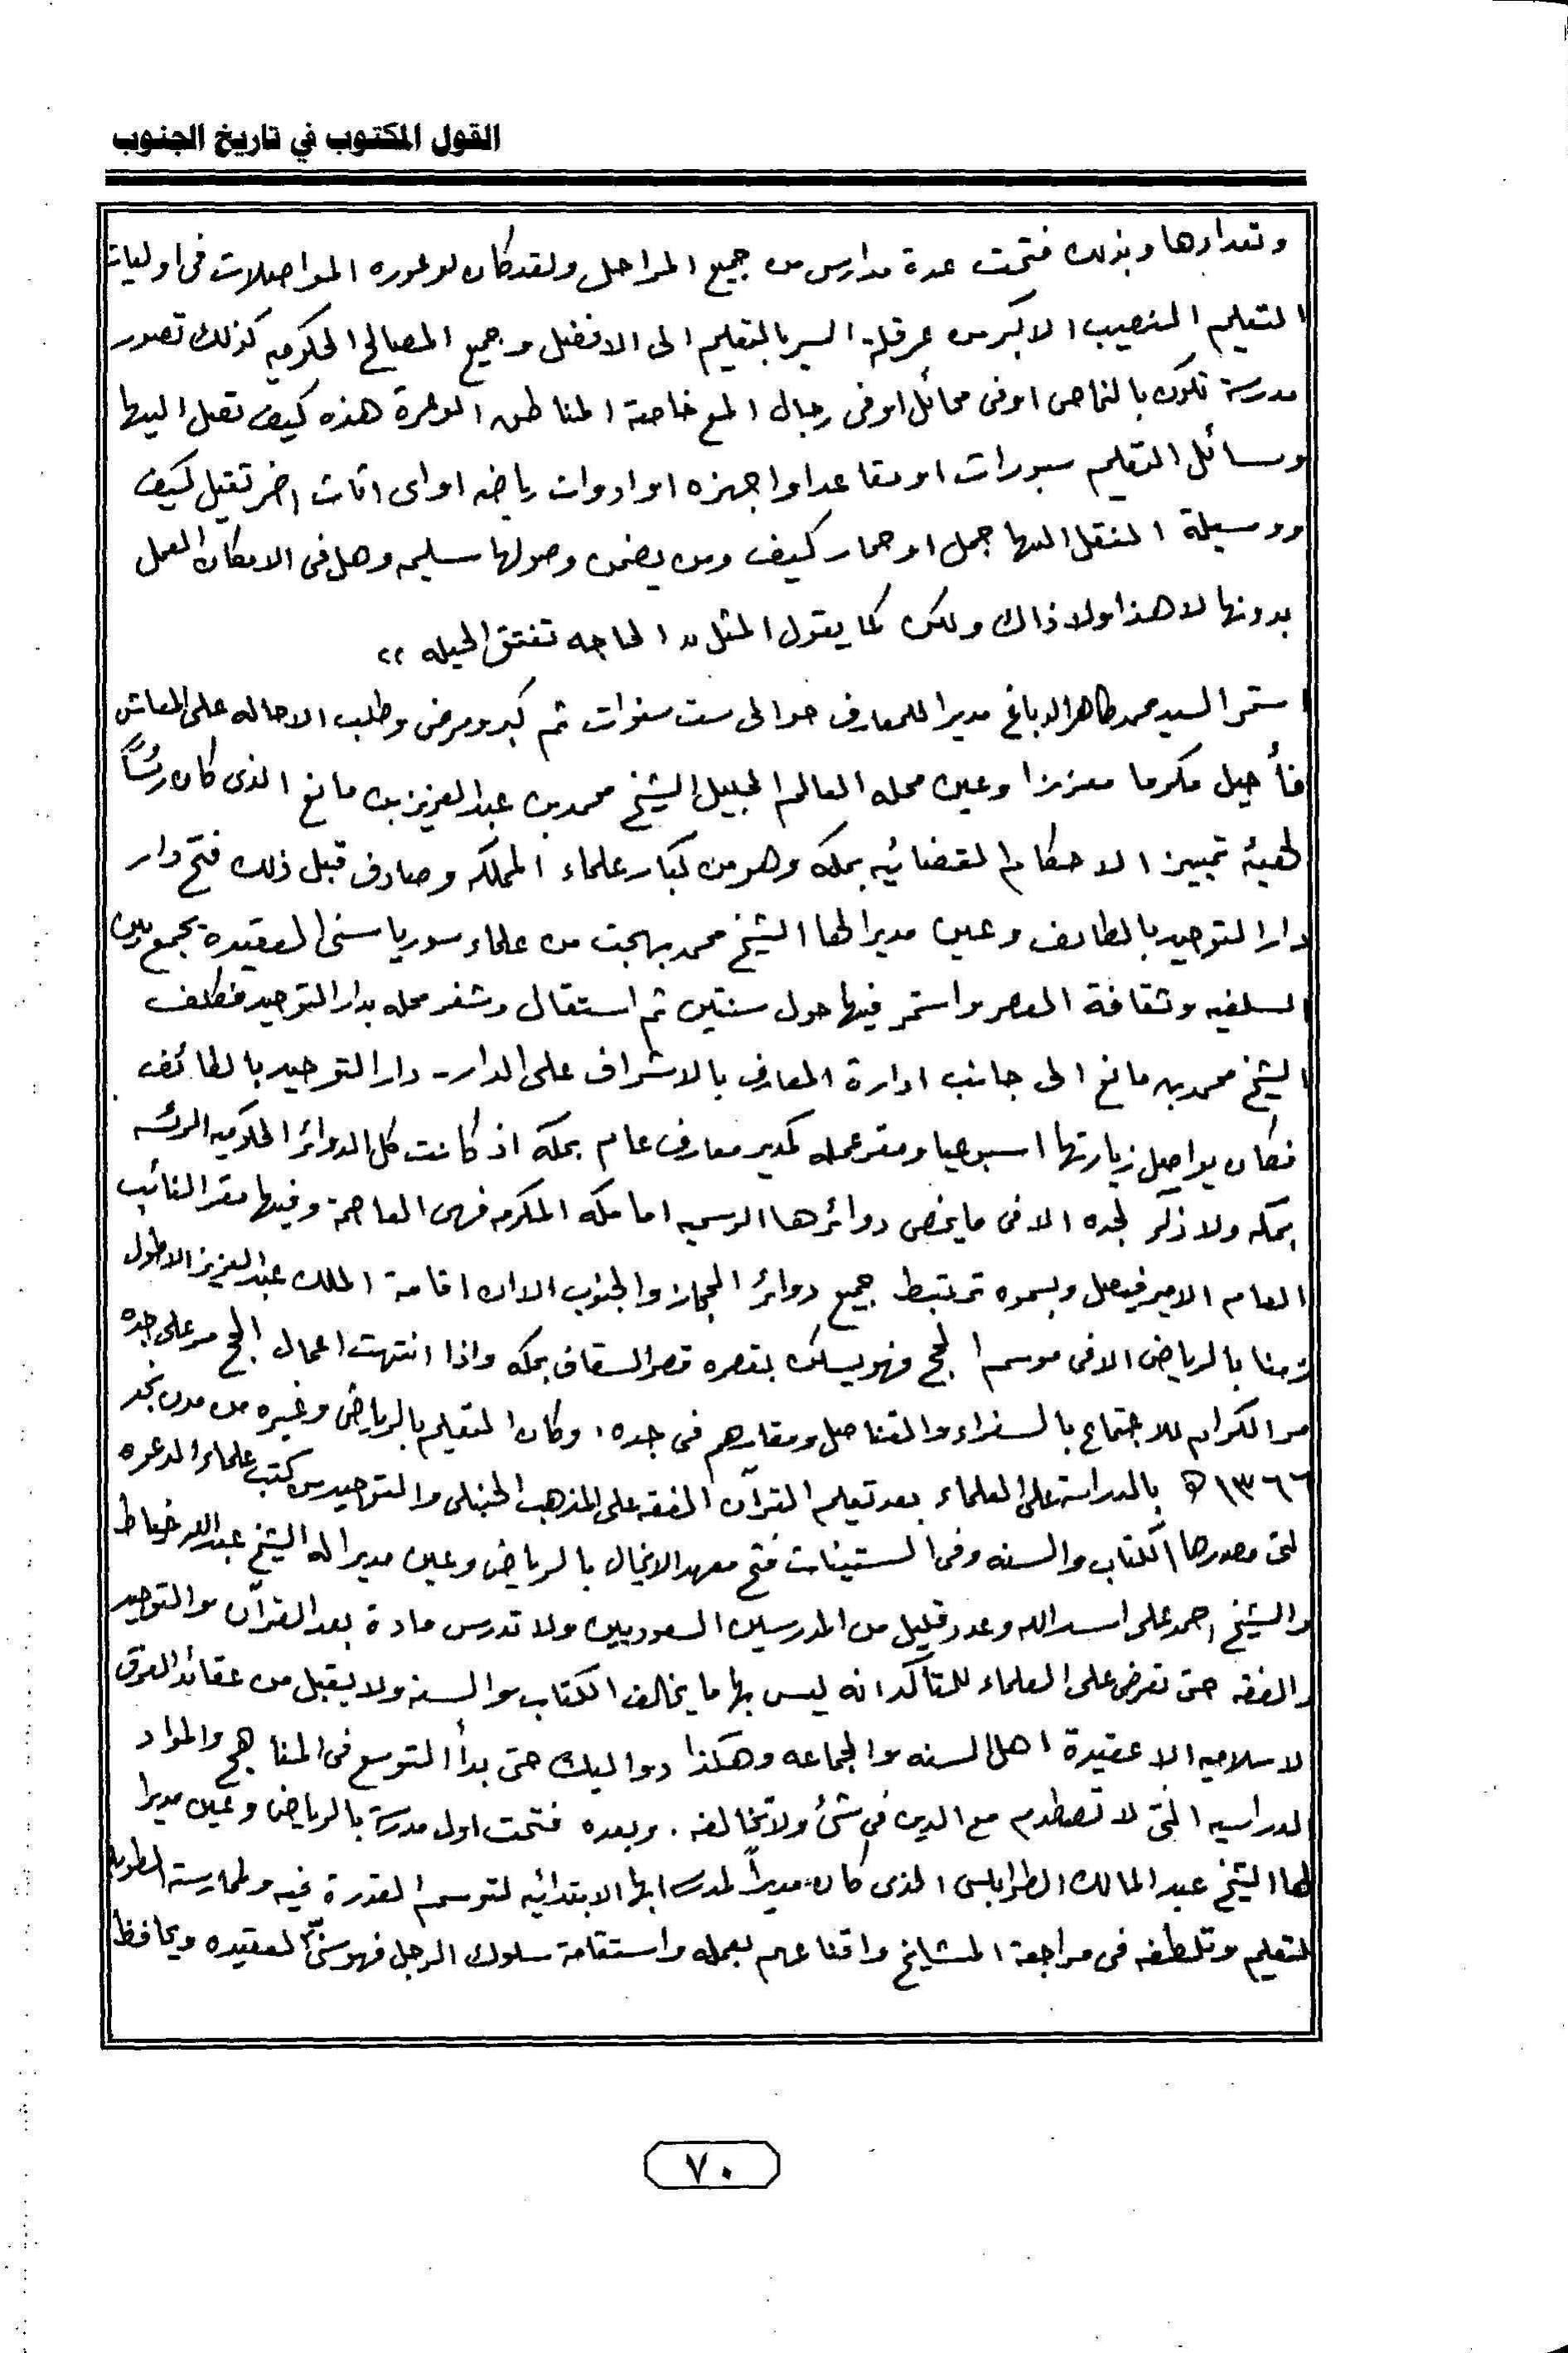 القول المكتوب في تاريخ الجنوب
وتعدادها وبذلك فتحت عدة مدارس من جميع المراحل ولقد كان لوعوره المواصلات فى اوليات
التعليم النصيب الاكبر من عرقلة السير بالتعليم الى الافضل وجميع المصالح الحكوميه كذلك تصور
مدرسة تكون بالنماص او فى محائل او فى رجال المع خاصة المناطق الوعرة هذه كيف تصل اليها
وسائل التعليم سبورات او مقاعد او اجهزه او ادوات رياضه او اى اثاث اخر ثقيل كيف
ووسيلة النقل اليها جمل او حمار كيف ومن يضمن وصولها سليمه وهل فى الامكان العمل
بدونها لا هذا ولا ذاك ولكن كما يقول المثل « الحاجه تفتق الحيله »
استمر السيد محمد طاهر الدباغ مديرا للمعارف حوالى ست سنوات ثم كبر ومرض وطلب الاحاله على المعاش
فأحيل مكرما معززا وعين محله العالم الجليل الشيخ محمد بن عبد العزيز بن مانع الذى كان رئيساً
لهيئة تمييز الاحكام القضائيه بمكه وهو من كبار علماء المملكه وصادف قبل ذلك فتح دار
دار التوحيد بالطائف وعين مديرا لها الشيخ محمد بهجت من علماء سوريا سنى العقيده يجمع بين
السلفيه وثقافة العصر واستمر فيها حول سنتين ثم استقال وشغر محله بدار التوحيد فكلف
الشيخ محمد بن مانع الى جانب ادارة المعارف بالاشراف على الدار - دار التوحيد بالطائف
فكان يواصل زيارتها اسبوعيا ومقر عمله كمدير معارف عام بمكه اذ كانت كل الدوائر الحكوميه
بمكه ولا ذكر لجده الا فى ما يخص دوائرها الرسميه اما مكه المكرمه فهى العاصمة وفيها مقر النائب
العام الامير فيصل وبسموه ترتبط جميع دوائر الحجاز والجنوب الا ان اقامة الملك عبد العزيز الاطول
زمنا بالرياض الا فى موسم الحج فهو يسكن بقصره قصر السقاف بمكه واذا انتهت اعمال الحج مر على جده
مر الكرام للاجتماع بالسفراء والقناصل ومقارهم فى جده، وكان التعليم بالرياض وغيره من مدن نجد
١٣٦٦ه بالدراسة على العلماء بعد تعليم القرآن الفقه على المذهب الحنبلى والتوحيد من كتب علماء الدعوه
لتى مصدرها الكتاب والسنه وفى الستينات فتح معهد الانجال بالرياض وعين مديرا له الشيخ عبد الله خياط
والشيخ احمد على اسد الله وعدد قليل من المدرسين السعوديين ولا تدرس مادة بعد القرآن والتوحيد
والفقه حتى تعرض على العلماء للتأكد انه ليس بها ما يخالف الكتاب والسنه ولا يقبل من عقائد الفرق
لاسلاميه الا عقيدة اهل السنه والجماعه وهكذا دواليك حتى بدأ التوسع فى المناهج والمواد
الدراسيه التى لا تصطدم مع الدين في شئ ولا تخالفه . وبعده فتحت اول مدرسة بالرياض وعين مديرا
لها الشيخ عبد المالك الطرابلسى الذى كان مديراً لمدرسة ابها الابتدائيه لتوسم القدرة فيه ولممارسته الطويله
لتعليم وتلطفه فى مراجعة المشايخ واقناعهم بعمله واستقامة سلوك الرجل فهو سنىّ العقيده ويحافظ
٧٠